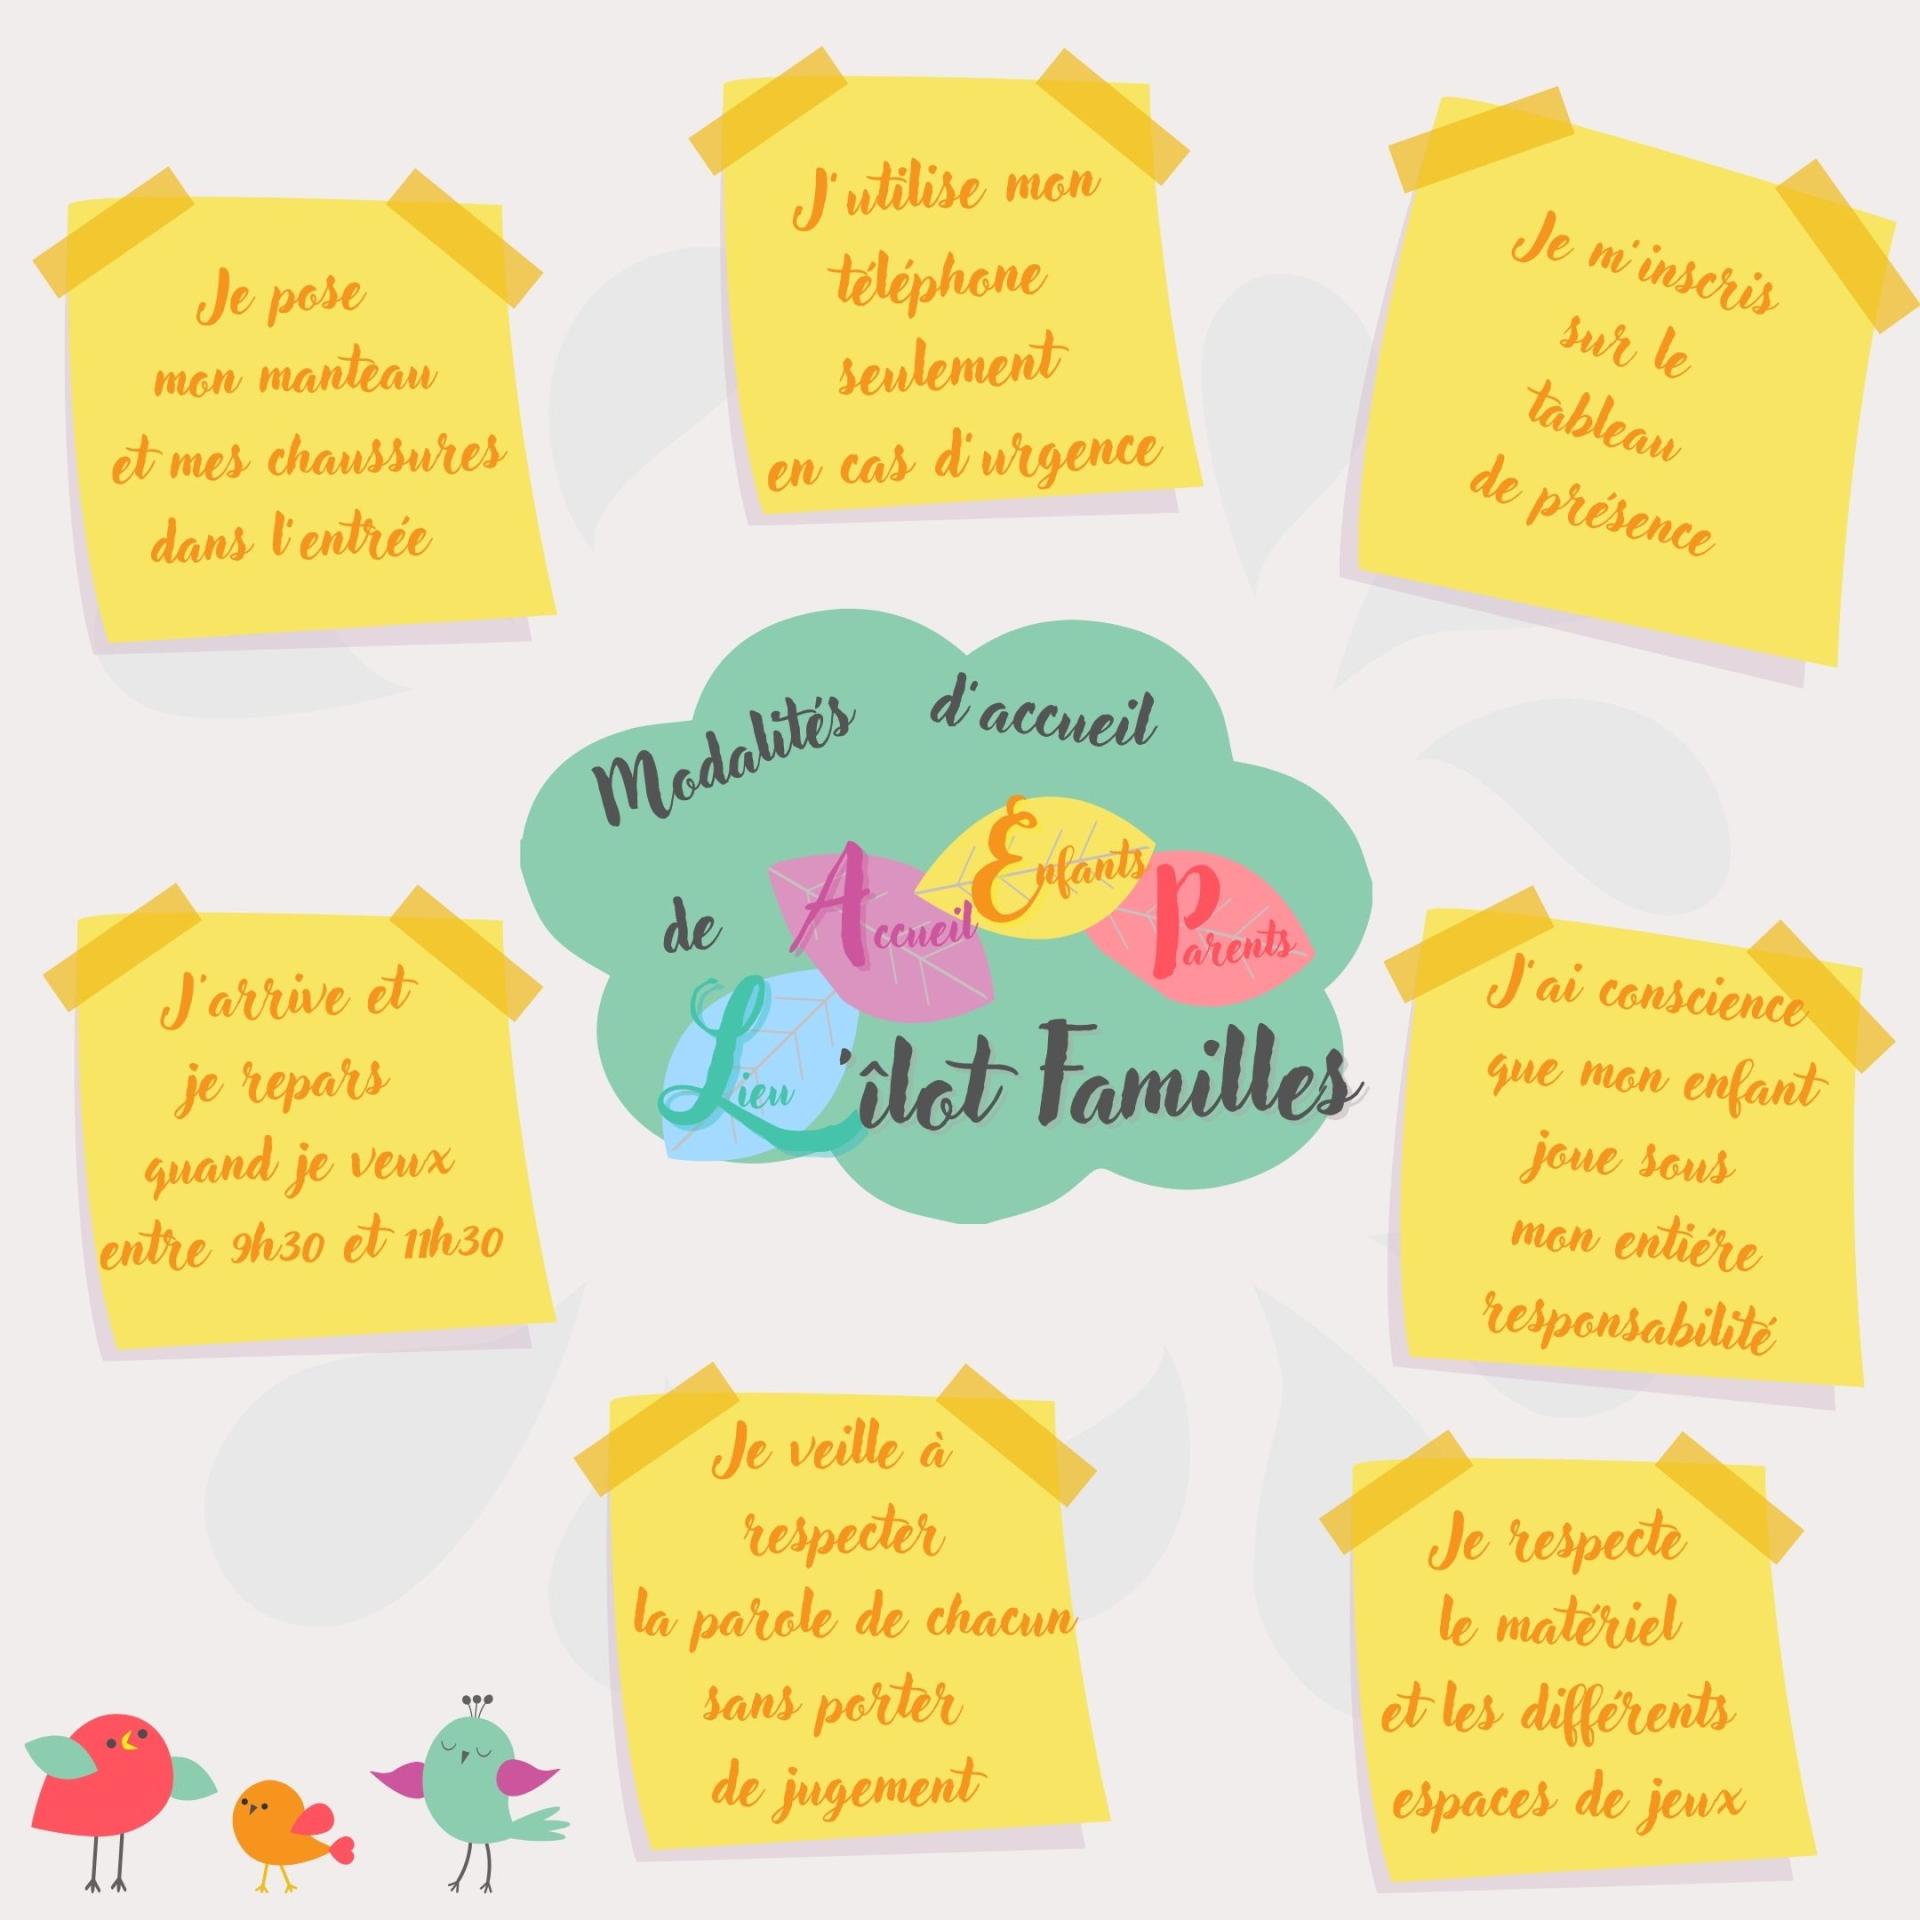 Je pose
mon manteau
et mes chaussures
dans l'entrée
J'utilise mon
téléphone
seulement
en cas d'urgence
Je m'inscris
sur le
tableau
de présence
Modalités d'accueil
de Accueil Enfants Parents
Lieu
L'îlot Familles
J'arrive et
je repars
quand je veux
entre 9h30 et 11h30
J'ai conscience
que mon enfant
joue sous
mon entiére
responsabilité
Je veille à
respecter
la parole de chacun
sans porter
de jugement
Je respecte
le matériel
et les différents
espaces de jeux